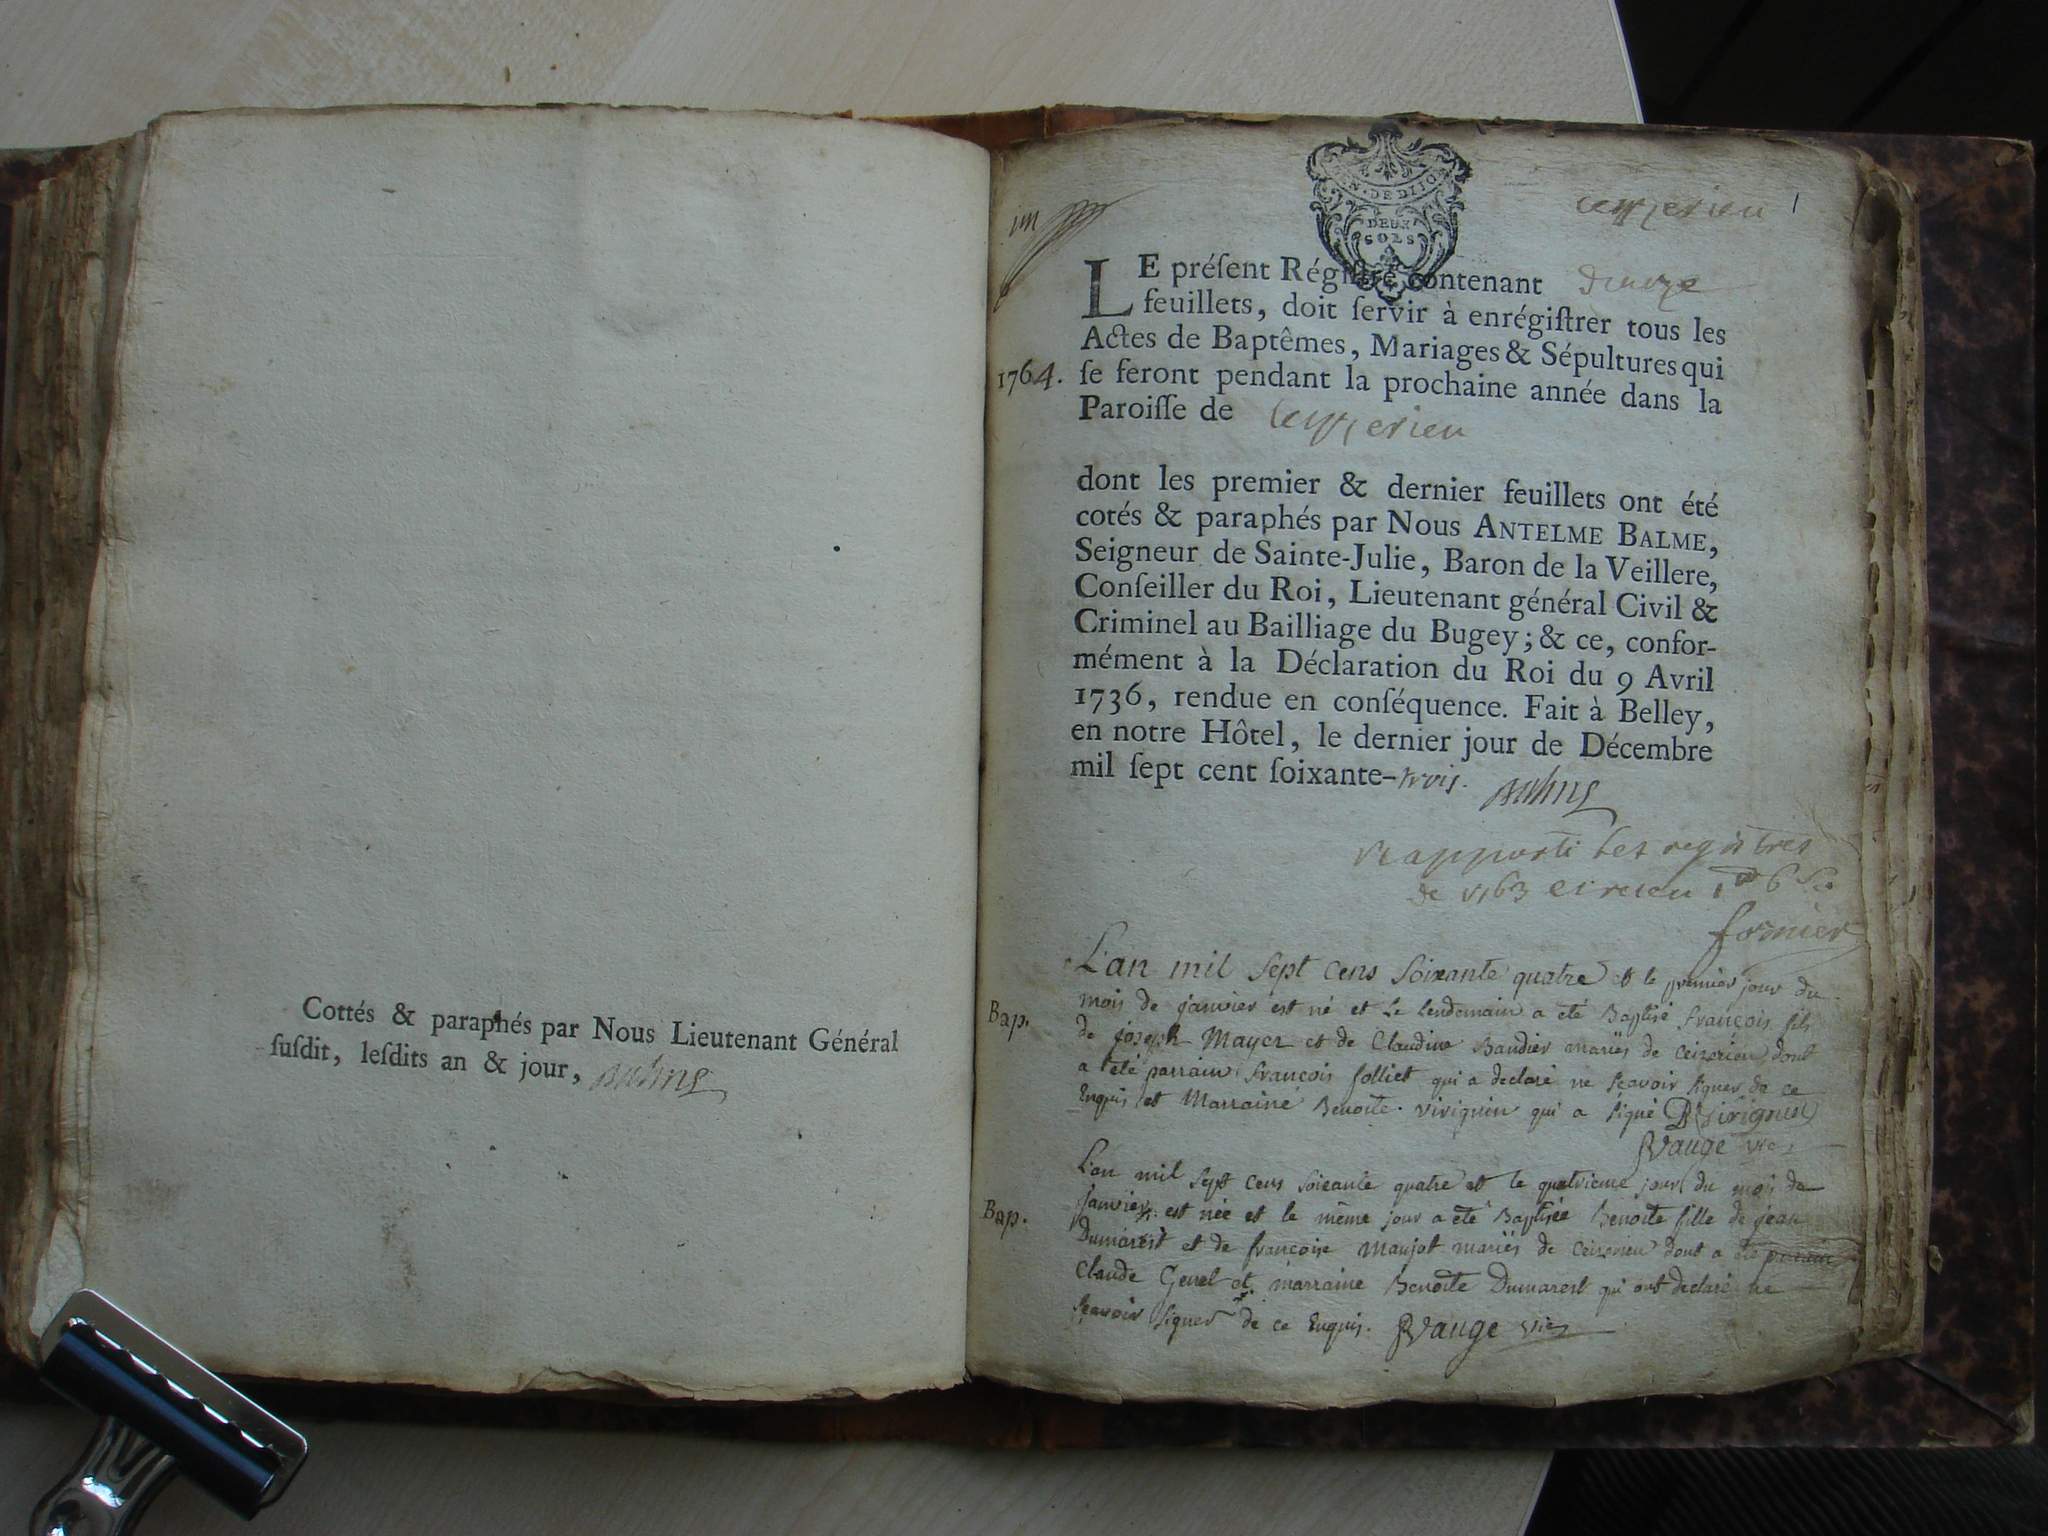 Cottés & paraphés par Nous Lieutenant Général
susdit, lesdits an & jour,
1
GEN. DE DIJON
DEUX
SOLS
LE présent Régistre contenant
feuillets, doit servir à enrégistrer tous les
Actes de Baptêmes, Mariages & Sépultures qui
1764. se feront pendant la prochaine année dans la
Paroisse de
dont les premier & dernier feuillets ont été
cotés & paraphés par Nous ANTELME BALME,
Seigneur de Sainte-Julie, Baron de la Veillere,
Conseiller du Roi, Lieutenant général Civil &
Criminel au Bailliage du Bugey; & ce, confor-
mément à la Déclaration du Roi du 9 Avril
1736, rendue en conséquence. Fait à Belley,
en notre Hôtel, le dernier jour de Décembre
mil sept cent soixante-trois.
rapporté les registres
de 1763
fornier
L'an mil sept cens soixante quatre et le premier jour du
Bap. mois de janvier est né et le lendemain a eté Baptisé françois fils
de joseph Mayer et de Claudine Baudier mariés de ceizerieu dont
a eté parrain françois folliet qui a declaré ne scavoir signer de ce
Enquis et Marraine Benoite Virignin qui a signé B Virignin
Vauge vic
L'an mil sept cens soixante quatre et le quatrieme jour du mois de
Bap. janvier est née et le même jour a eté Baptisée Benoite fille de jean
Dumarest et de françoise Maujot mariés de ceizerieu dont a eté parrain
Claude Genet et marraine Benoite Dumarest qui ont declaré ne
scavoir signer de ce Enquis. Vauge vic